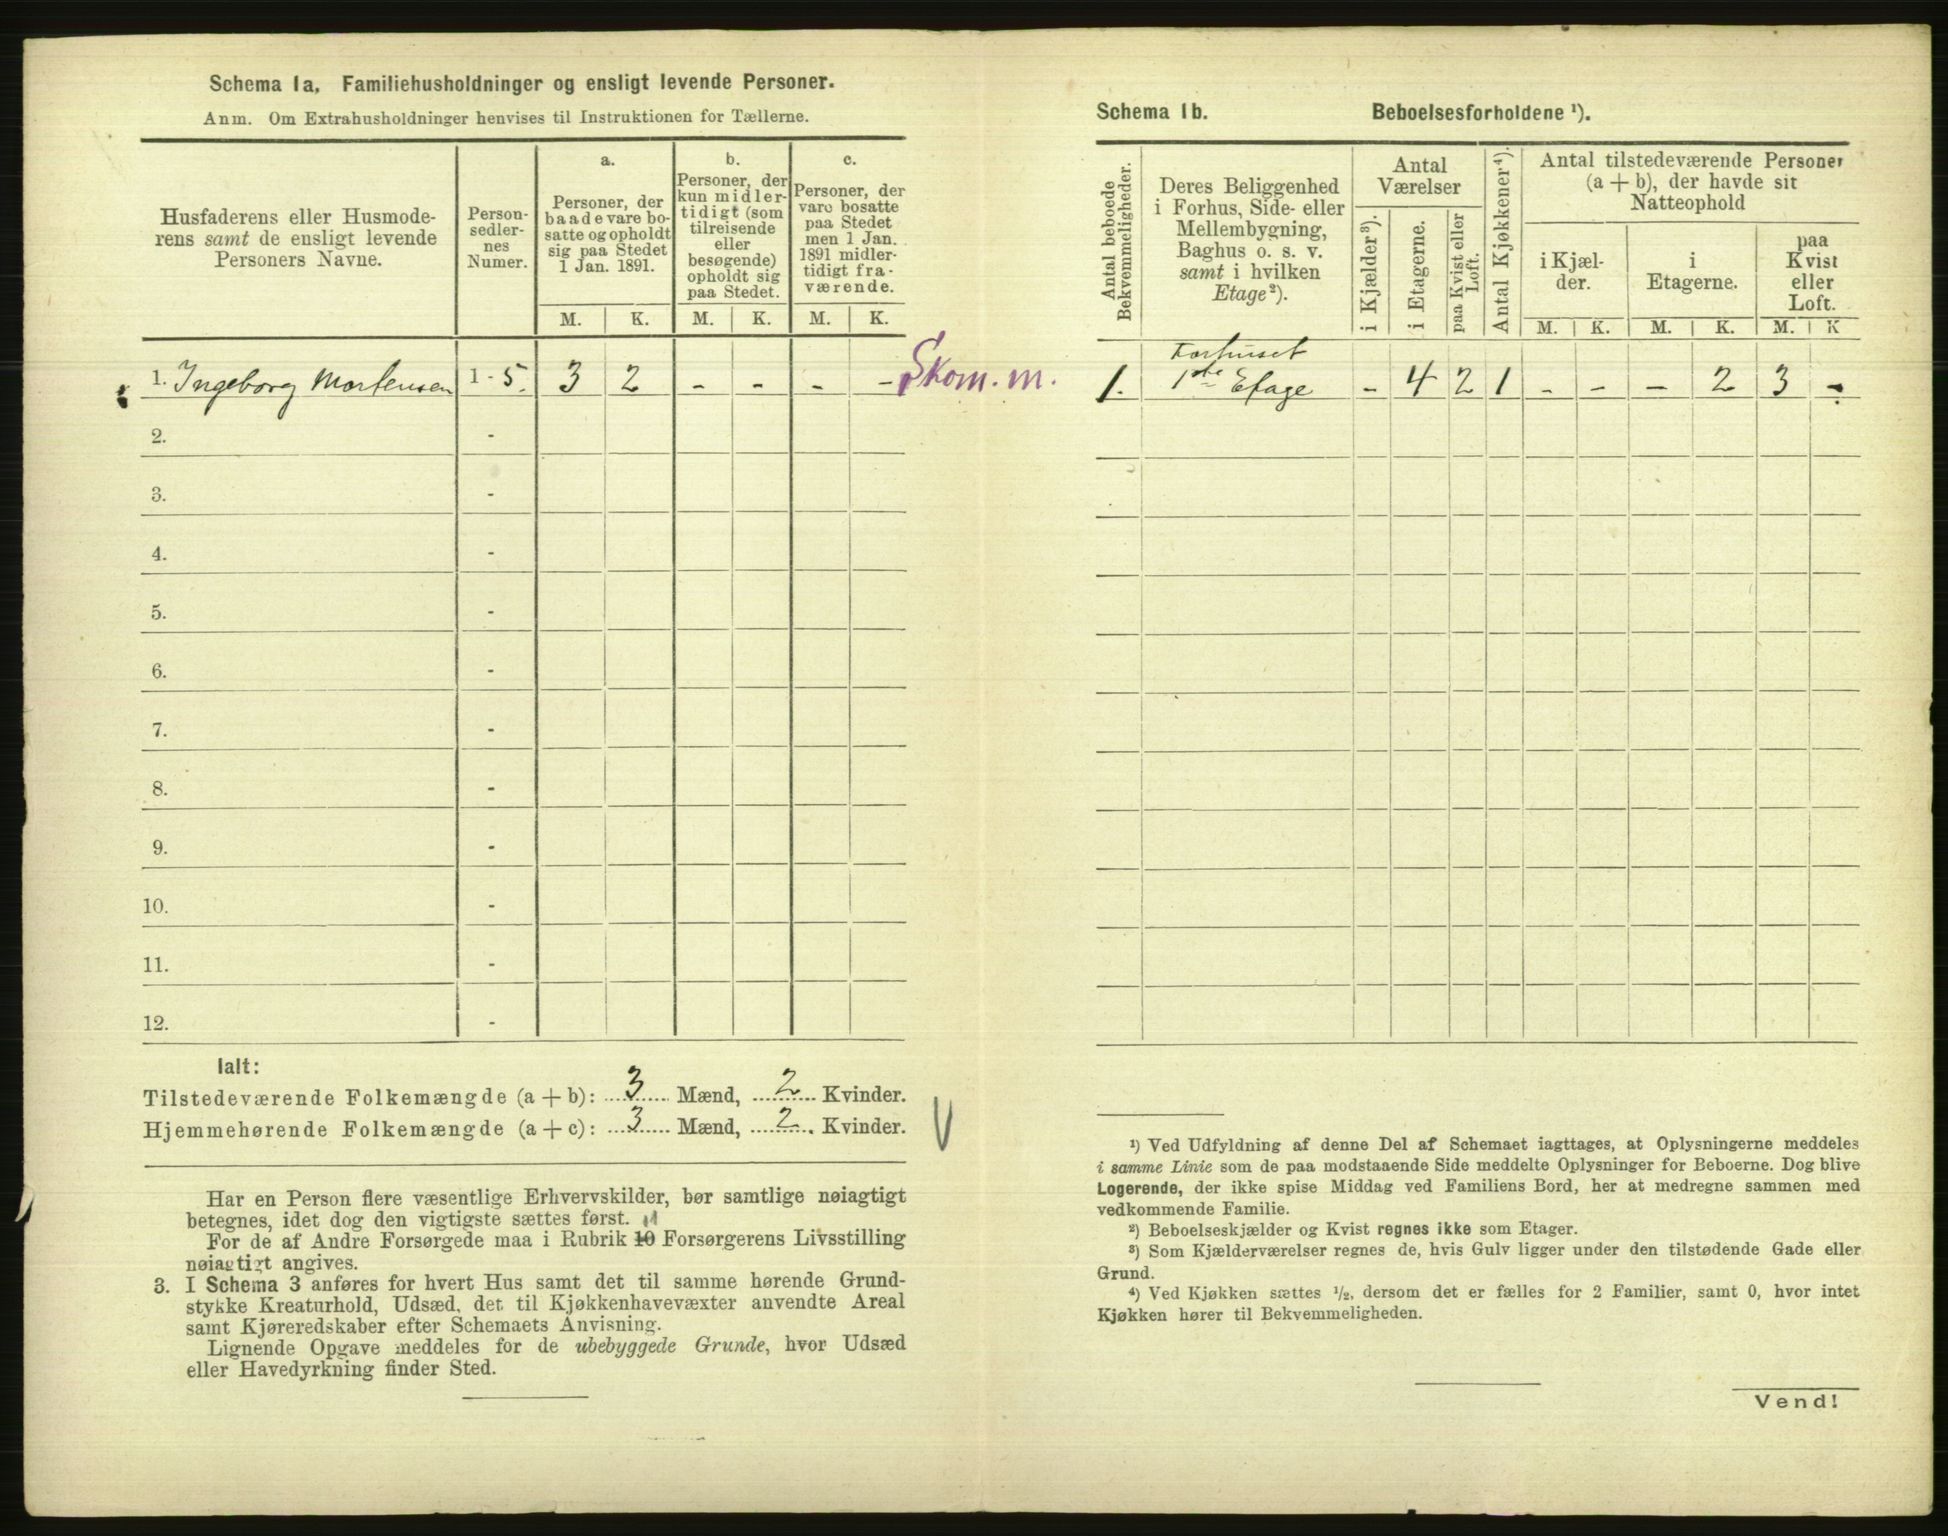 Schema 1a. Familiehusholdninger og ensligt levende Personer.
Anm. Om Extrahusholdninger henvises til Instruktionen for Tællerne.
Husfaderens eller Husmode-
rens samt de ensligt levende
Personers Navne.
Person-
sedler-
nes
Numer.
a.
Personer, der
baade vare bo-
satte og opholdt
sig paa Stedet
1 Jan. 1891.
M. K.
b.
Personer, der
kun midler-
tidigt (som
tilreisende
eller
besøgende)
opholdt sig
paa Stedet.
M. K.
c.
Personer, der
vare bosatte
paa Stedet
men 1 Jan.
1891 midler-
tidigt fra-
værende.
M. K.
1. Ingeborg Mortensen 1 - 5. 3 2 - - - - Skom. m.
2. -
3. -
4. -
5. -
6. -
7. -
8. -
9. -
10. -
11. -
12. -
Ialt:
Tilstedeværende Folkemængde (a + b): 3 Mænd, 2 Kvinder.
Hjemmehørende Folkemængde (a + c): 3 Mænd, 2 Kvinder.
Har en Person flere væsentlige Erhvervskilder, bør samtlige nøiagtigt
betegnes, idet dog den vigtigste sættes først. 11
For de af Andre Forsørgede maa i Rubrik 10 Forsørgerens Livsstilling
nøiagtigt angives.
3. I Schema 3 anføres for hvert Hus samt det til samme hørende Grund-
stykke Kreaturhold, Udsæd, det til Kjøkkenhavevæxter anvendte Areal
samt Kjøreredskaber efter Schemaets Anvisning.
Lignende Opgave meddeles for de ubebyggede Grunde, hvor Udsæd
eller Havedyrkning finder Sted.
Schema 1b. Beboelsesforholdene ¹).
Antal beboede
Bekvemmeligheder.
Deres Beliggenhed
i Forhus, Side- eller
Mellembygning,
Baghus o. s. v.
samt i hvilken
Etage²).
Antal
Værelser
i Kjælder³).
i Etagerne.
paa Kvist eller
Loft.
Antal Kjøkkener⁴).
Antal tilstedeværende Personer
(a + b), der havde sit
Natteophold
i Kjæl-
der.
M. K.
i
Etagerne.
M. K.
paa
Kvist
eller
Loft.
M. K
Forhuset
1. 1ste Etage - 4 2 1 - - - 2 3 -
¹) Ved Udfyldning af denne Del af Schemaet iagttages, at Oplysningerne meddeles
i samme Linie som de paa modstaaende Side meddelte Oplysninger for Beboerne. Dog blive
Logerende, der ikke spise Middag ved Familiens Bord, her at medregne sammen med
vedkommende Familie.
²) Beboelseskjælder og Kvist regnes ikke som Etager.
³) Som Kjælderværelser regnes de, hvis Gulv ligger under den tilstødende Gade eller
Grund.
⁴) Ved Kjøkken sættes ½, dersom det er fælles for 2 Familier, samt 0, hvor intet
Kjøkken hører til Bekvemmeligheden.
Vend!